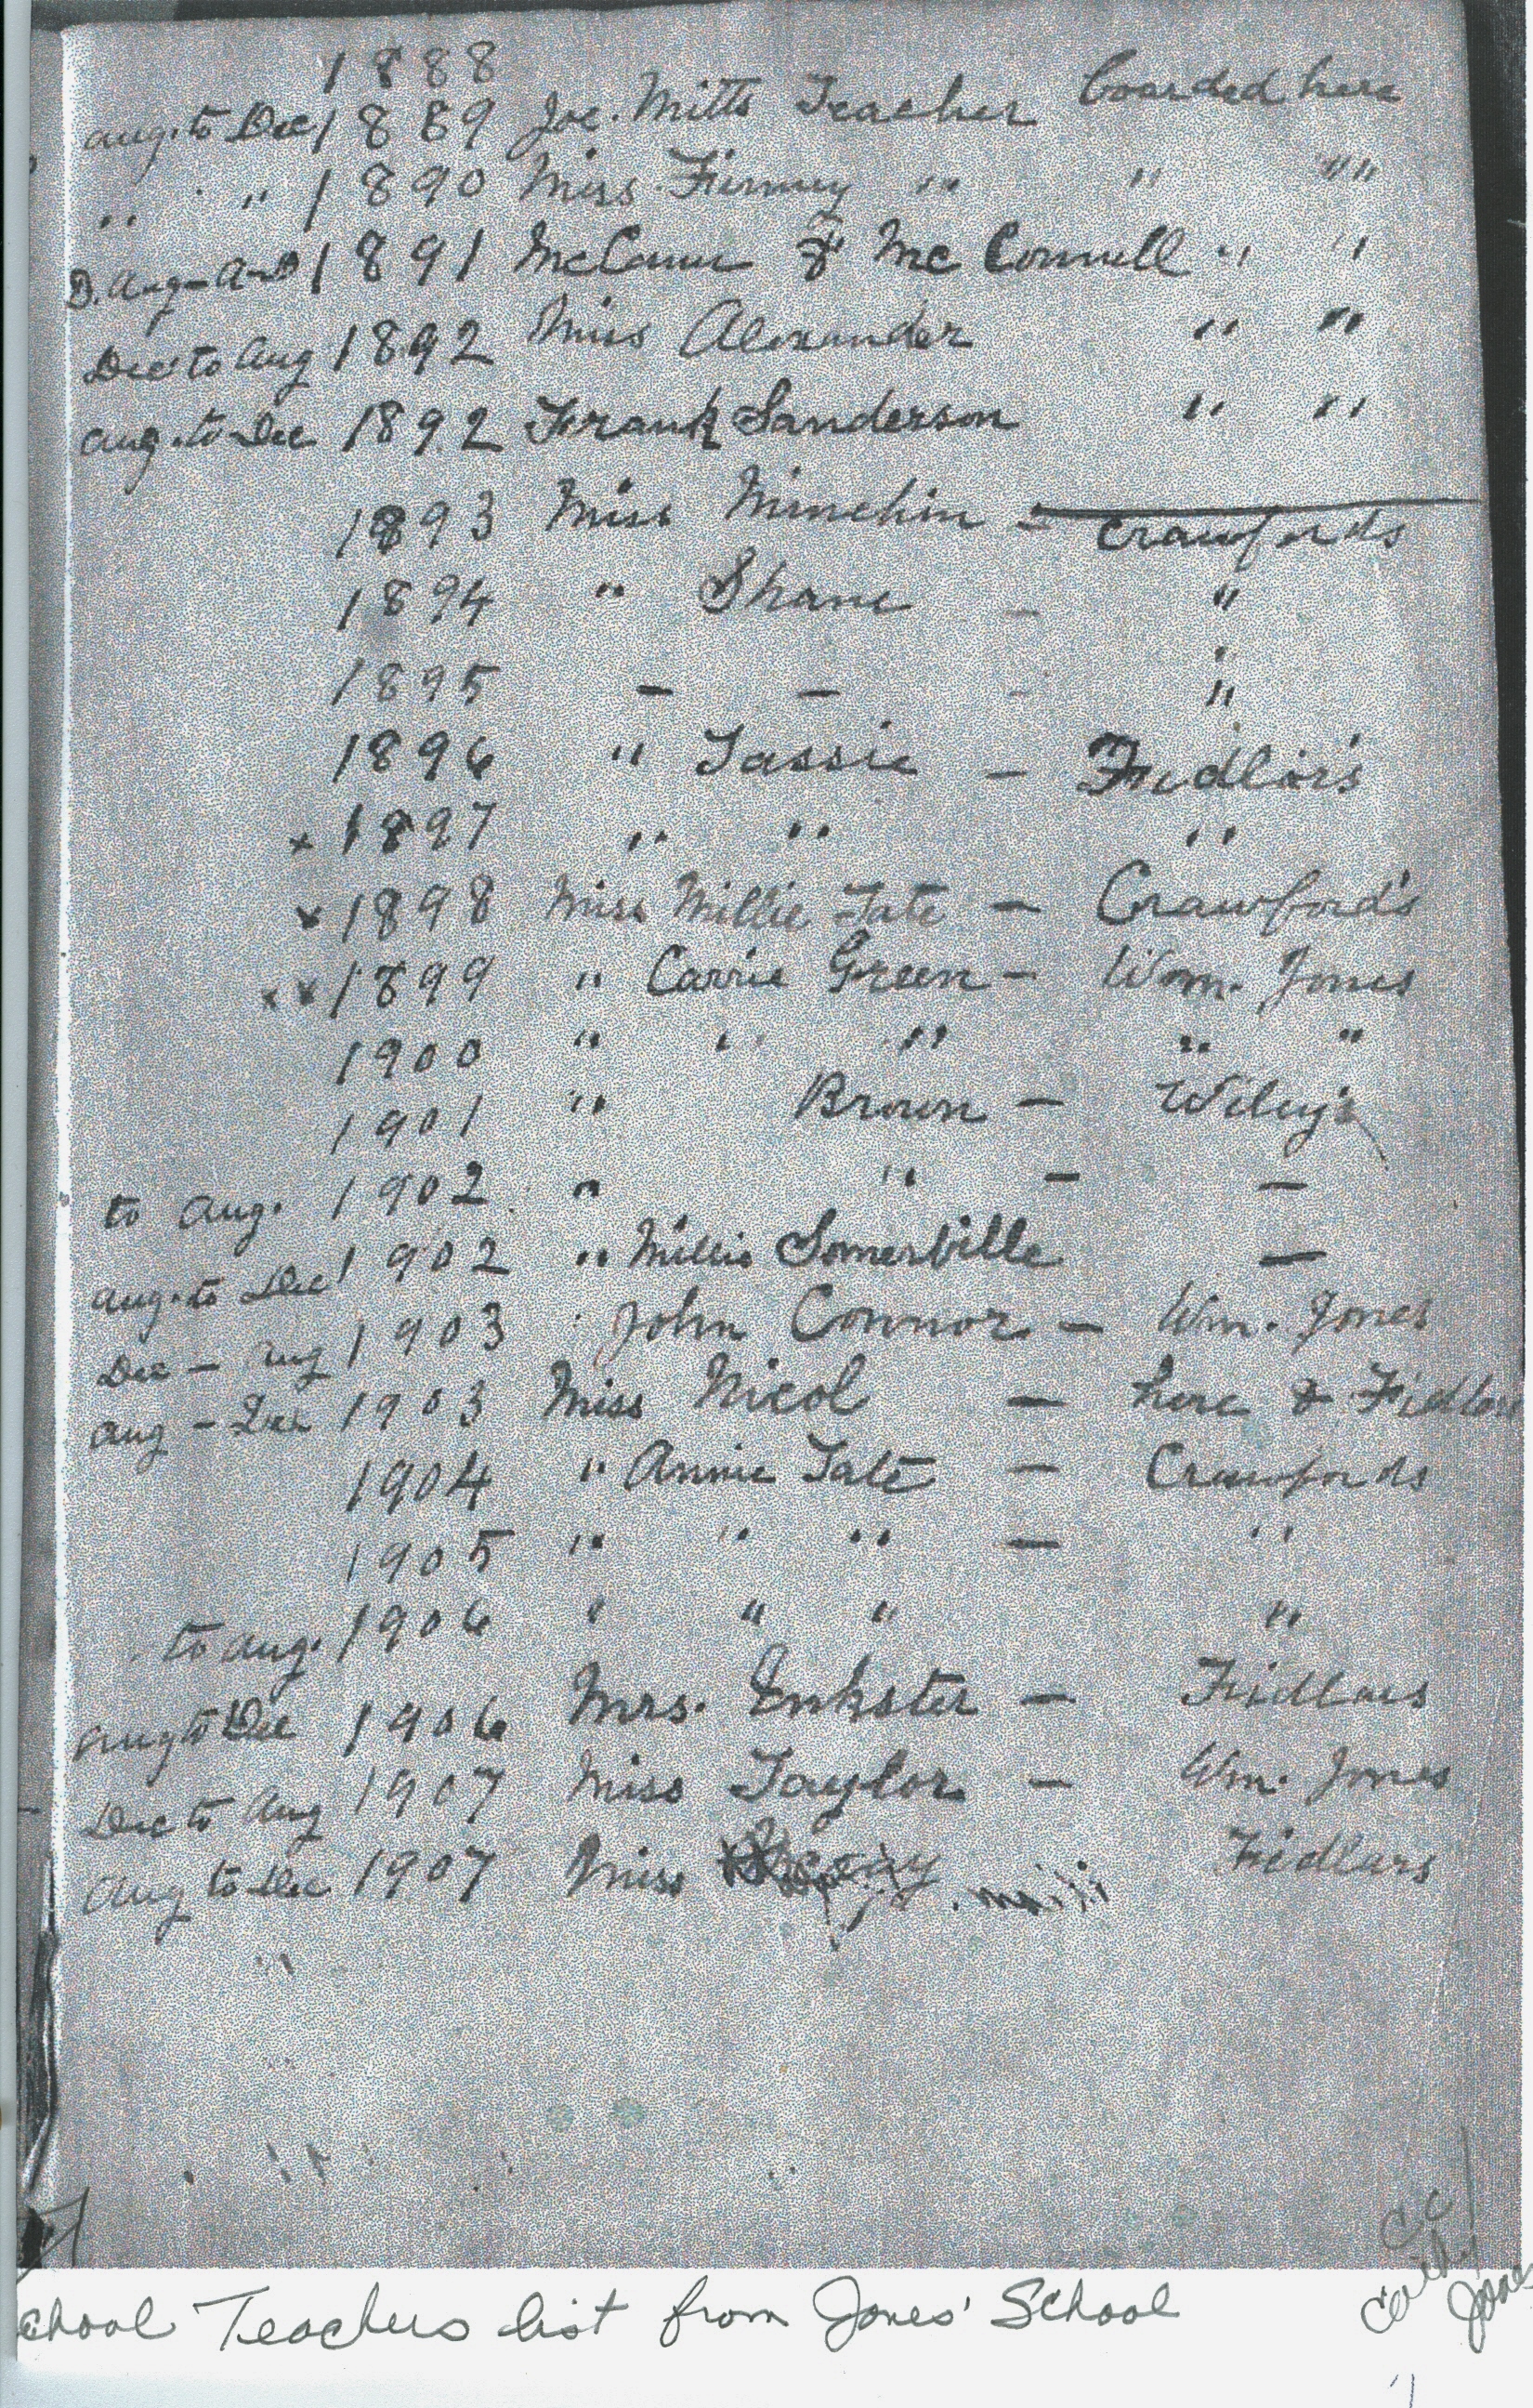 1888
Aug. to Dec 1889 Joe. Mitts Teacher boarded here
" " 1890 Miss " " "
1891 McCann & McConnell " "
Dec to Aug 1892 Miss Alexander " "
Aug. to Dec 1892 Frank Sanderson " "
1893 Miss Minchin - Crawfords
1894 " Shane - "
1895 - - - "
1896 " Tassie - Fidlar's
x 1897 " " "
x 1898 Miss Millie Tate - Crawford's
x x 1899 " Carrie Green - Wm. Jones
1900 " " " " "
1901 " Brown - Wiley's
to Aug. 1902 " " - -
Aug. to Dec 1902 " Millie Somerville -
Dec - Aug 1903 John Connor - Wm. Jones
Aug - Dec 1903 Miss Nicol - here &
1904 " Annie Tate - Crawfords
1905 " " " - "
to Aug. 1906 " " " "
Aug to Dec 1906 Mrs. Inkster - Fidlars
Dec to Aug 1907 Miss Taylor - Wm. Jones
Aug to Dec 1907 Miss Fidlars
chool Teachers list from Jones' School
Jones